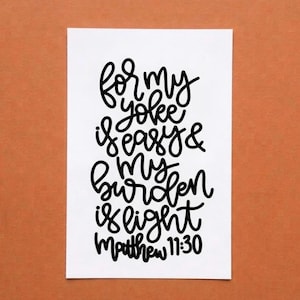 for my
yoke
is easy &
my
burden
is light
Matthew 11:30